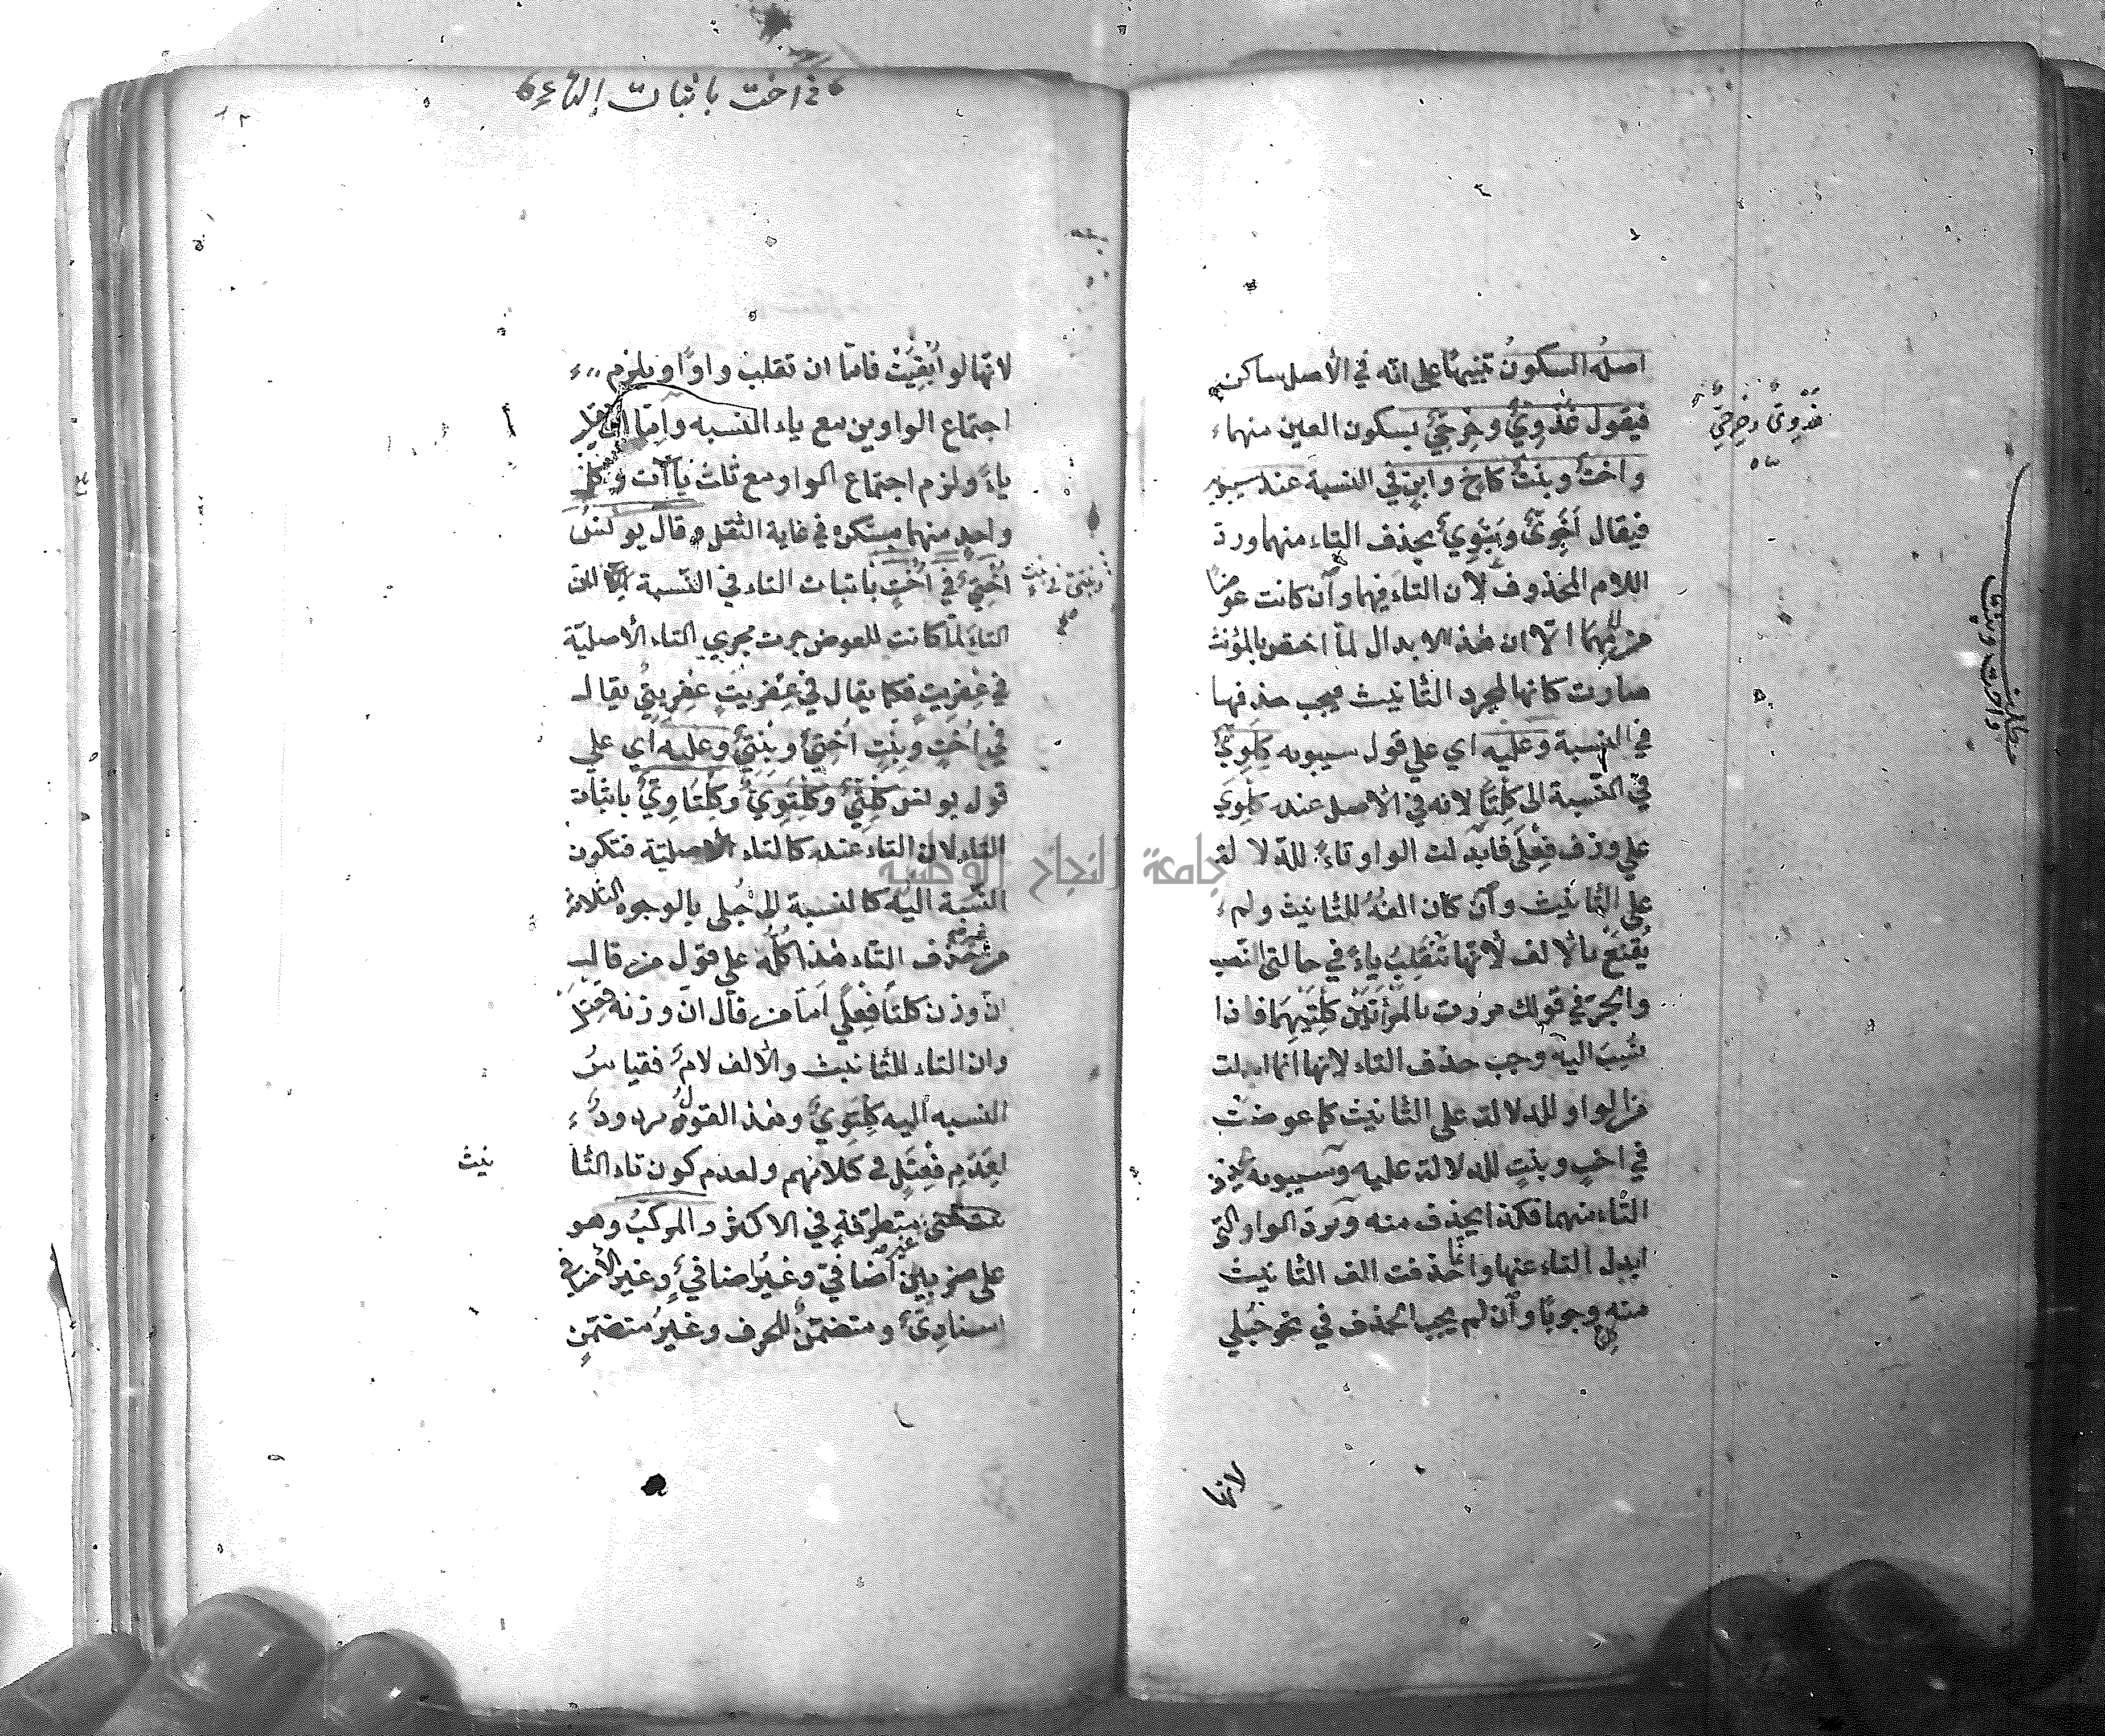 اصلُه السكونُ تنبيهًا على انّه في الأصل ساكن
فيقول غَدْوِيٌّ وحِرْحِيٌّ بسكون العين منهما
واختٌ وبنتٌ كاخٍ وابنٍ في النسبة عند سيبويه
فيقال أخَوِيٌّ وبَنَوِيٌّ بحذف التاء منهما ورد
اللام المحذوف لأن التاء فيهما وإن كانت عوضا
من لامهما الّا ان هذه الابدال لمّا اختص بالمؤنث
صارت كانها لمجرد التأنيث فيجب حذفها
في النسبة وعليه اي على قول سيبويه كِلَوِيٌّ
في النسبة الى كِلْتَا لانه في الأصل عنده كِلْوَى
على وزن فِعْلَى فابدلت الواو تاءً للدلالة
على التأنيث وإن كان الفُهُ للتأنيث ولم
يُقنَع بالالف لأنها تنقلِبُ ياءً في حالتى النصب
والجرّ في قولك مررت بالمرأتين كِلتَيهِما فاذا
نُسِبَ اليه وجب حذف التاء لانها انما ابدلت
من الواو للدلالة على التأنيث كما عوضت
في اختٍ وبنتٍ للدلالة عليه وسيبويه يحذف
التاء منهما فكذا يحذف منه ويرد الواو التى
ابدل التاء عنها وانما حذفت الف التأنيث
منه وجوبًا وإن لم يجب الحذف في نحو حُبْلى
لانها
غَدْوِيٌّ وحِرْحِيٌّ
واخت وبنت
في اخت باثبات التاء
لانّها لو اُبْقِيَتْ فامّا ان تقلب واوًا ويلزم
اجتماع الواوين مع ياء النسبه وامّا ان
ياءً ولزم اجتماع الواو مع ثلث ياآت وكل
واحدٍ منهما مستكره في غاية الثقل وقال يونس
اُختِيٌّ في اُخْتٍ باثبات التاء في النّسبة لان
التاء لمّا كانت للعوض جرت مجرى التاء الأصليّة
في عِفْرِيتٍ فكما يقال في عِفْرِيتٍ عِفْرِيتِيٌّ يقال
في اُختٍ وبِنتٍ اُختِيٌّ وبِنتِيٌّ وعليه اي على
قول يونس كِلْتِيٌّ وكِلْتَوِيٌّ وكِلْتَاوِيٌّ باثبات
التاء لان التاء عنده كالتاء الأصليّة فتكون
النّسبة اليه كالنسبة الى حُبلى بالوجوه الثلاثة
من غير حذف التاء هذا كلّه على قول من قال
انّ وزن كلتا فِعْلَى امّا من قال ان وزنه فِعْتَل
وان التاء للتأنيث والألف لامٌ فقياسُ
النسبه اليه كِلْتَوِيٌّ وهذا القول مردود
لِعَدَمِ فِعْتَلٍ في كلامهم ولعدم كون تاء التأ
نيث
متطرّفةٍ في الاكثر والمركب وهو
على ضربين اضافيّ وغيرُ اضافيٍّ وغير الأضافي
اسنادِيٌّ ومتضمّنٌ للحرف وغيرُ متضمّنٍ
وبنتىّ في بنت
جامعة النجاح الوطنية